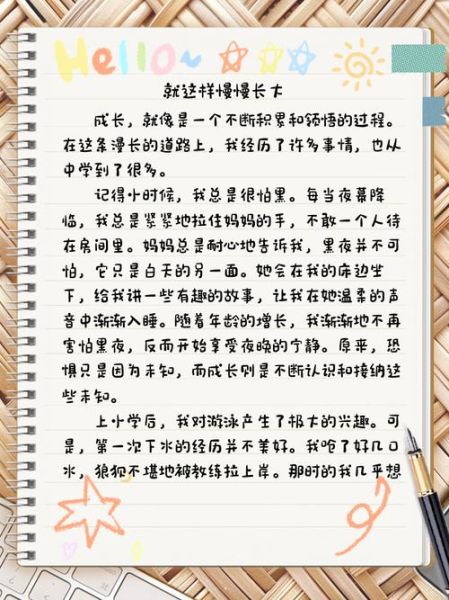 Hello~
就这样慢慢长大
成长，就像是一个不断积累和领悟的过程。
在这条漫长的道路上，我经历了许多事情，也从
中学到了很多。
记得小时候，我总是很怕黑。每当夜幕降
临，我总是紧紧地拉住妈妈的手，不敢一个人待
在房间里。妈妈总是耐心地告诉我，黑夜并不可
怕，它只是白天的另一面。她会在我的床边坐
下，给我讲一些有趣的故事，让我在她温柔的声
音中渐渐入睡。随着年龄的增长，我渐渐地不再
害怕黑夜，反而开始享受夜晚的宁静。原来，恐
惧只是因为未知，而成长则是不断认识和接纳这
些未知。
上小学后，我对游泳产生了极大的兴趣。可
是，第一次下水的经历并不美好。我呛了好几口
水，狼狈不堪地被教练拉上岸。那时的我几乎想